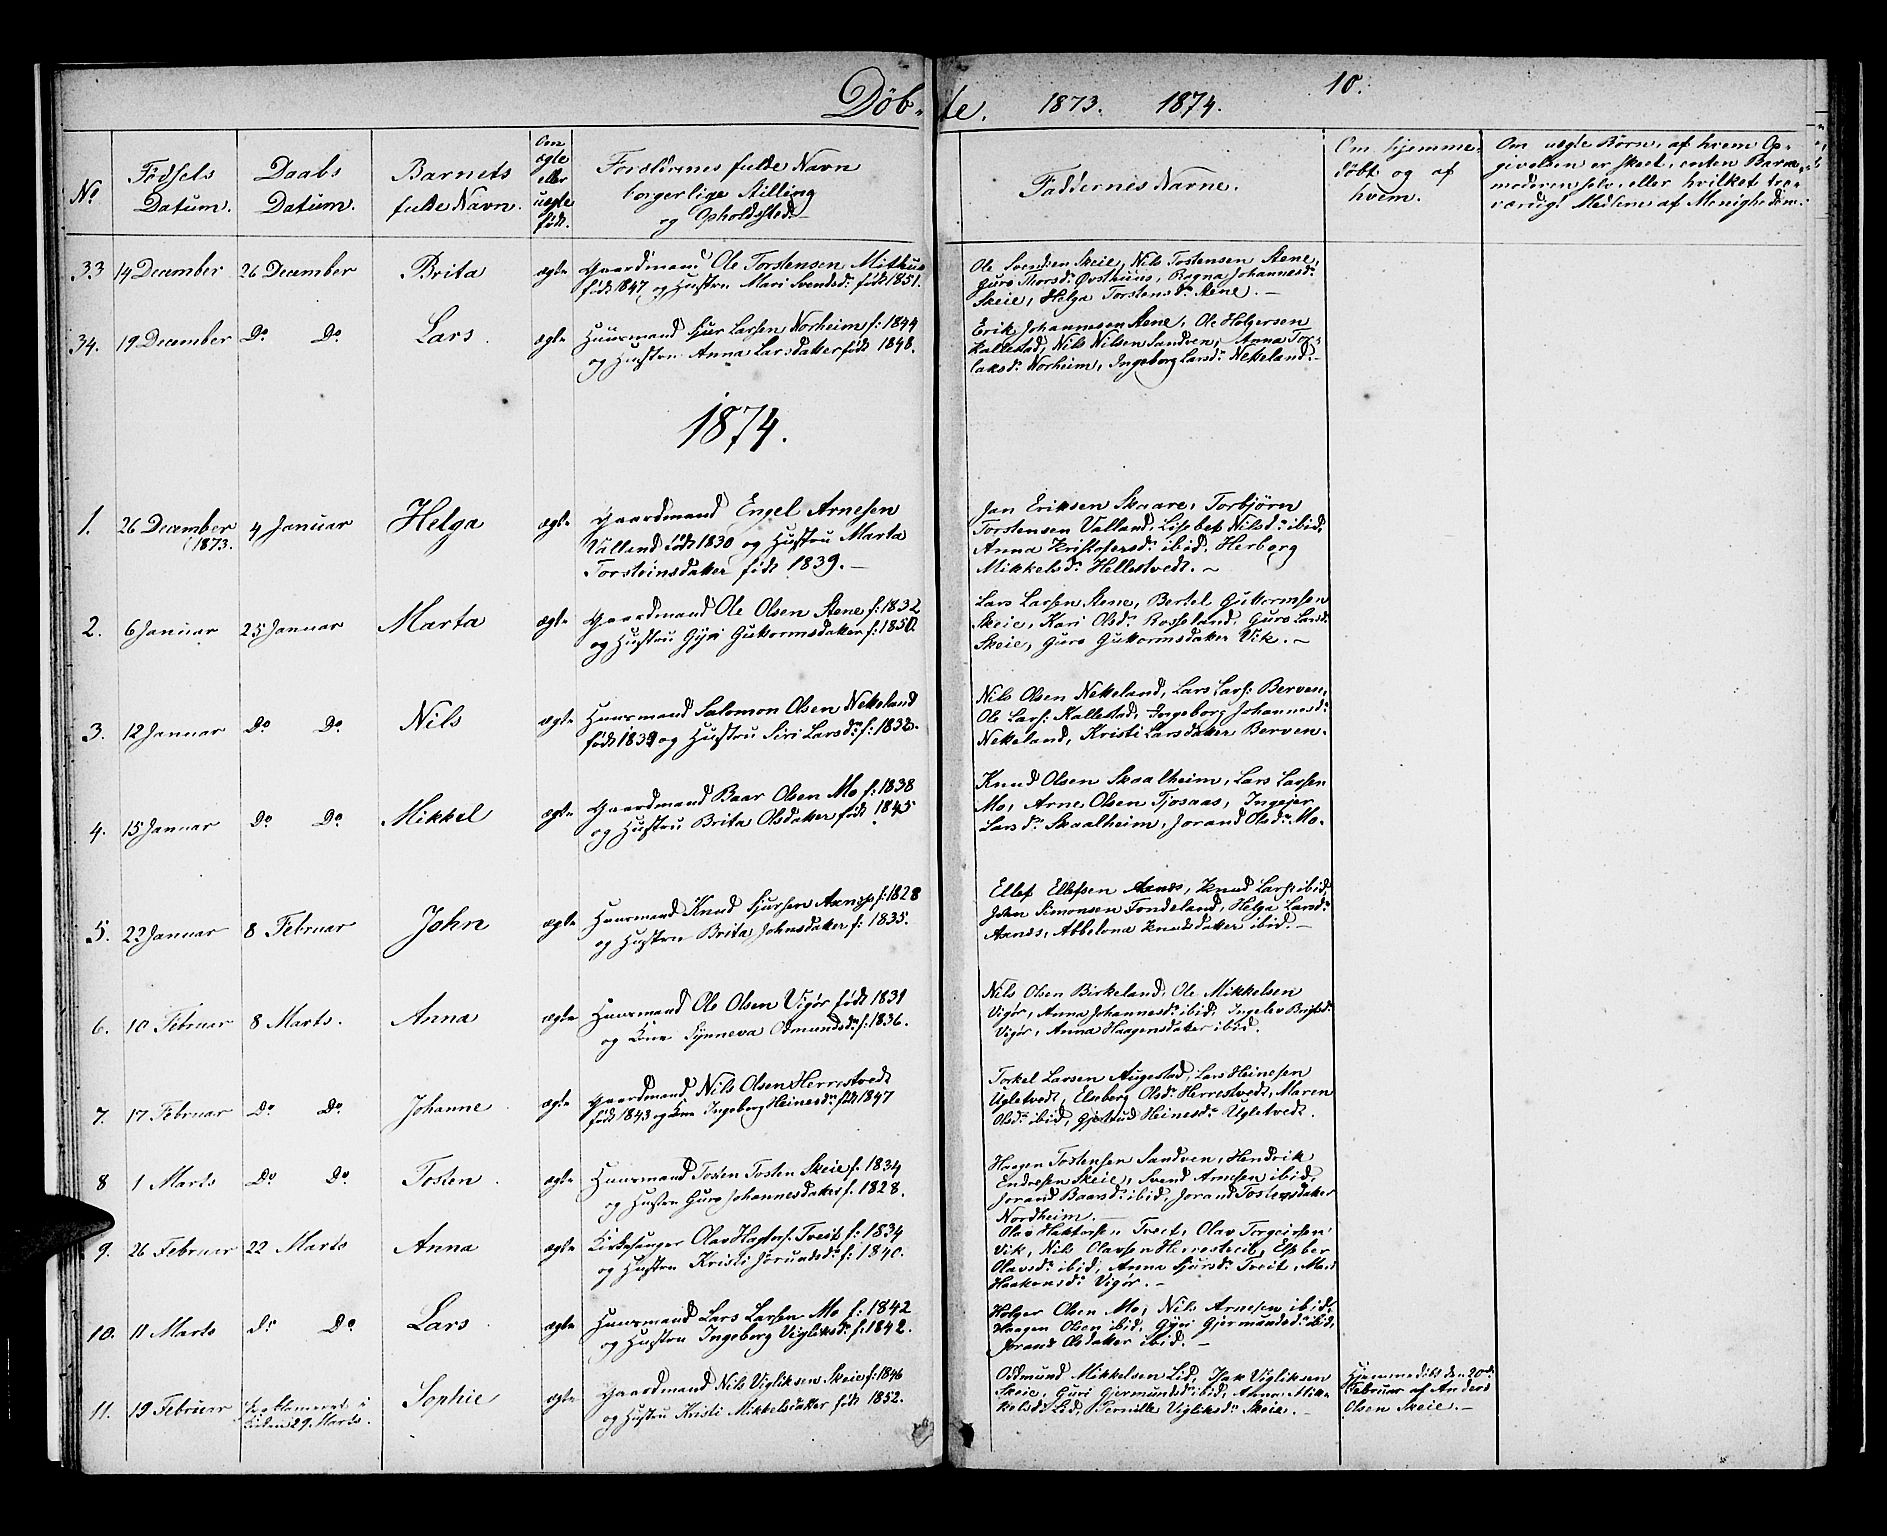 Döbte. 1873. 1874. 10.
No
Födsels Datum.
Daabs Datum.
Barnets fulde Navn.
Om ægte eller uægte født.
Forældrenes fulde Navn borgerlige Stilling og Opholdssted
Faddernes Navne.
Om hjemmedöbt og af hvem.
Om uægte Börn, af hvem Opgivelsen er skeet, enten Barnemoderen selv, eller hvilket troværdigt Medlem af Menigheden.
33 14 December 26 December Brita ægte Gaardmand Ole Torstensen Mithus
født 1847 og Hustru Mari Svendsdr født 1851.
Ole Svendsen Skeie, Nils Tostensen Stene,
Guro Thorsdr Øvsthuus, Ragna Johannesdr
Skeie, Helga Torstensdr Stene. -
34. 19 December Do Do Lars ægte Huusmand Sjur Larsen Norheim f: 1844
og Hustru Anna Larsdatter født 1848.
Erik Johannesen Stene, Ole Holgersen
Kallestad, Nils Nilsen Sandven, Anna Tor-
laksdr Norheim, Ingeborg Larsdr Netteland. -
1874.
1. 26 December 1873. 4 Januar Helga ægte Gaardmand Engel Arnesen
Valland født 1830 og Hustru Marta
Torsteinsdatter født 1839. -
Jan Eriksen Skaare, Torbjörn
Torstensen Valland, Lisebet Nilsdr ibid,
Anna Kristofersdr ibid, Herborg
Mikkelsdr Hellestvedt. -
2. 6 Januar 25 Januar Marta ægte Gaardmand Ole Olsen Stene f: 1832
og Hustru Gyri Guttormsdatter f: 1850.
Lars Larsen Stene, Bertel Guttormsen
Skeie, Kari Olsdr Rosseland, Guro Larsdr
Skeie, Guro Guttormsdatter Vik. -
3. 12 Januar Do Do Nils ægte Huusmand Salomon Olsen Netteland
født 1839 og Hustru Siri Larsdr f: 1838.
Nils Olsen Netteland, Lars Lars: Berven,
Ole Lars: Kallestad, Ingeborg Johannesdr
Netteland, Kristi Larsdatter Berven.
4. 15 Januar Do Do Mikkel ægte Gaardmand Baar Olsen Mo f: 1838
og Hustru Brita Olsdatter født 1845
Knud Olsen Skaalheim, Lars Larsen
Mo, Arne Olsen Tjosaas, Ingejer
Larsdr Skaalheim, Jorand Olsdr Mo.
5. 22 Januar 8 Februar John ægte Huusmand Knud Sjursen Aanæs f: 1828
og Hustru Brita Johnsdatter f: 1835.
Ellef Ellefsen Aanæs, Knud Lars: ibid,
John Simonsen Tondeland, Helga Larsdr
Aanæs, Abbelona Knudsdatter ibid. -
6. 10 Februar 8 Marts. Anna ægte Huusmand Ole Olsen Vigör født 1831
og Kone Synneva Odmundsdr f: 1836.
Nils Olsen Birkeland, Ole Mikkelsen
Vigör, Anna Johannesdr ibid, Ingelev
Vigör, Anna Haagensdatter ibid.
7. 17 Februar Do Do Johanne ægte Gaardmand Nils Olsen Herrestvedt
født 1843 og Kone Ingeborg Heinesdr født 1847
Torkel Larsen Augestad, Lars Heinesen
Ugletvedt, Elseborg Olsdr Herrestvedt, Maren
Olsdr ibid, Gjertrud Heinesdr Ugletvedt.
8 1 Marts Do Do Tosten ægte Huusmand Tosten Tosten Skeie f: 1834
og Hustru Guro Johannesdatter f: 1828.
Haagen Tostensen Sandven, Hendrik
Endresen Skeie, Svend Arnesen ibid,
Jorand Baarsdr ibid, Jorand Tostensdatter
Nordheim. -
9. 26 Februar 22 Marts Anna ægte Kirkesanger Olav Hagtors: Tveit f: 1834
og Hustru Kristi Jorundsdr f: 1840.
Olav Haktorsen Tveit, Olav Torgeirsen
Vik, Nils Olavsen Herrestveit, Elsber
Olavsdr ibid, Anna Sjursdr Tveit,
Haakonsdr Vigör. -
10. 11 Marts Do Do Lars ægte Huusmand Lars Larsen Mo f: 1842
og Hustru Ingeborg Vigliksdr f: 1842.
Holger Olsen Mo, Nils Arnesen ibid,
Haagen Olsen ibid, Gyri Gjermundsdr ibid,
Jorand Olsdatter ibid. -
11. 19 Februar Proklameret i Kirken 29. Marts. Sophie ægte Gaardmand Nils Vigliksen Skeie f: 1846
og Hustru Kristi Mikkelsdatter født 1852.
Oddmund Mikkelsen Lid, Isak Vigliksen
Skeie, Guri Gjermundsdr ibid, Anna Mik-
kelsdr Lid, Pernille Vigliksdr Skeie. -
Hjemmedöbt den 20de
Februar af Anders
Olsen Skeie. -